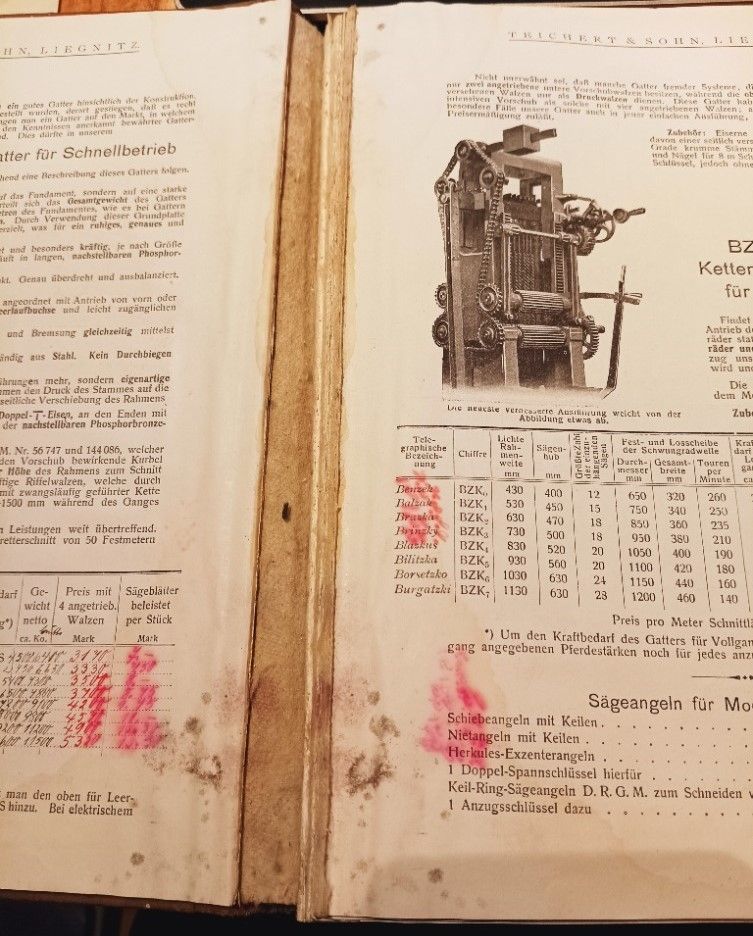 HN, LIEGNITZ
ein gutes Gatter hinsichtlich der Konstruktion,
estellt wurden, derart gestiegen, daß es recht
ingen nun ein Gatter auf den Markt, in welchem
den Kenntnissen anerkannt bewährter Gatter-
nd. Dies dürfte in unserem
atter für Schnellbetrieb
hend eine Beschreibung dieses Gatters folgen.
uf das Fundament, sondern auf eine starke
erteilt sich das Gesamtgewicht des Gatters
etzen des Fundamentes, wie es bei Gattern
n. Durch Verwendung dieser Grundplatte
erzielt, was für ein ruhiges, genaues und
et und besonders kräftig, je nach Größe
äuft in langen, nachstellbaren Phosphor-
nkt. Genau überdreht und ausbalanziert.
angeordnet mit Antrieb von vorn oder
eerlaufbuchse und leicht zugänglichen
und Bremsung gleichzeitig mittelst
ändig aus Stahl. Kein Durchbiegen
ührungen mehr, sondern eigenartige
mmen den Druck des Stammes auf die
seitliche Verschiebung des Rahmens
Doppel-T-Eisen, an den Enden mit
der nachstellbaren Phosphorbronze-
M. Nr. 56 747 und 144 086, welcher
den Vorschub bewirkende Kurbel
Höhe des Rahmens zum Schnitt
ftige Riffelwalzen, welche durch
mit zwangsläufig geführter Kette
-1500 mm während des Ganges
n Leistungen weit übertreffend.
retterschnitt von 50 Festmetern
darf Ge- Preis mit Sägeblätter
wicht 4 angetrieb. beleistet
g*) netto Walzen per Stück
ca. Ko. Mark Mark
3170
3330
3500
3700
man den oben für Leer-
S hinzu. Bei elektrischem
TEICHERT & SOHN, LIE
Nicht unerwähnt sei, daß manche Gatter fremder Systeme, di
nur zwei angetriebene untere Vorschubwalzen besitzen, während die ob
versehenen Walzen nur als Druckwalzen dienen. Diese Gatter hab
intensiven Vorschub als solche mit vier angetriebenen Walzen; a
besondere Fälle unsere Gatter auch in jener einfachen Ausführung,
Preisermäßigung zuläßt.
Zubehör: Eiserne
davon einer seitlich versch
Grade krumme Stämm
und Nägel für 8 m Sch
Schlüssel, jedoch ohne
BZ
Ketten
für
Findet
Antrieb de
räder stat
räder und
zug uns
wird un
Die
dem Mo
Zub
Die neueste verbesserte Ausführung weicht von der
Abbildung etwas ab.
Tele-
graphische
Bezeich-
nung Chiffre Lichte
Rah-
men-
weite
mm Sägen-
hub
mm Größte Zahl
der einzu-
hängenden
Sägen Fest- und Losscheibe
der Schwungradwelle Kraf
Durch-
messer
mm Gesamt-
breite
mm Touren
per
Minute
Benzek BZK₀ 430 400 12 650 320 260
Balzak BZK₁ 530 450 15 750 340 250
Braska BZK₂ 630 470 18 850 360 235
Brinzky BZK₃ 730 500 18 950 380 210
Blazkus BZK₄ 830 520 20 1050 400 190
Bilitzka BZK₅ 930 560 20 1100 420 180
Borsetzko BZK₆ 1030 630 24 1150 440 160
Burgatzki BZK₇ 1130 630 28 1200 460 140
Preis pro Meter Schnittlä
*) Um den Kraftbedarf des Gatters für Vollgan
gang angegebenen Pferdestärken noch für jedes anzu
Sägeangeln für Mo
Schiebeangeln mit Keilen
Nietangeln mit Keilen
Herkules-Exzenterangeln
1 Doppel-Spannschlüssel hierfür
Keil-Ring-Sägeangeln D. R. G. M. zum Schneiden v
1 Anzugsschlüssel dazu